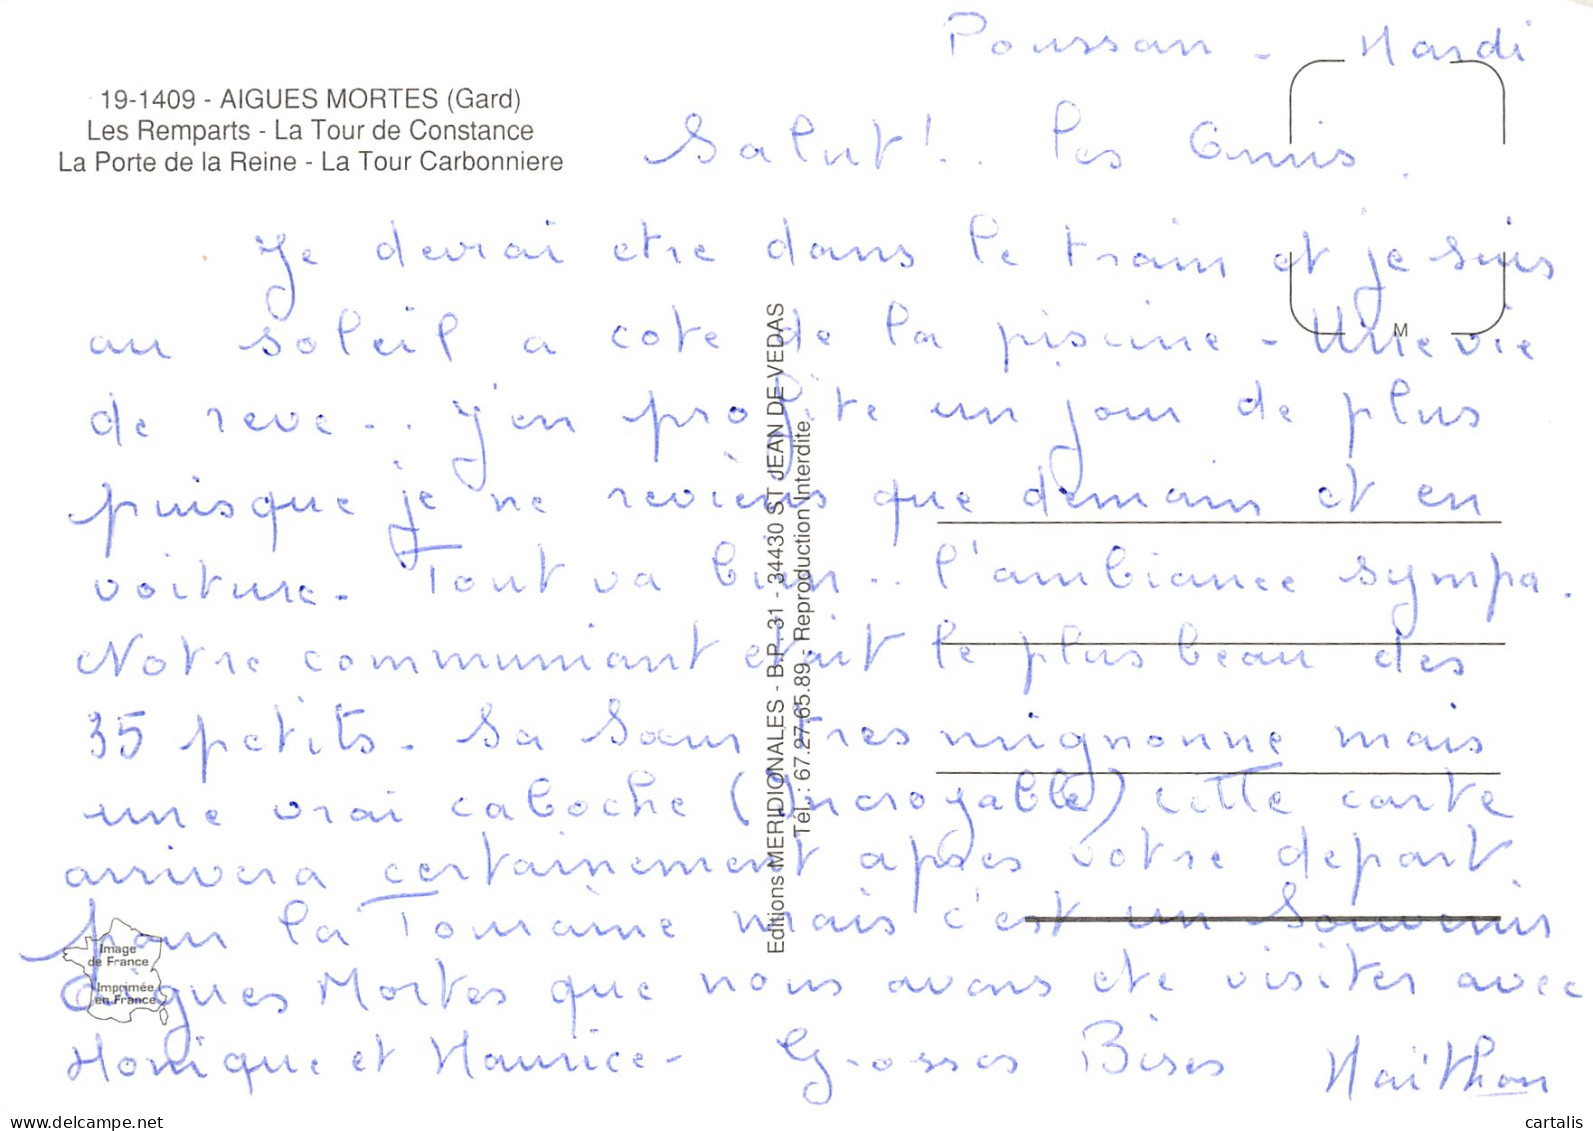 Poussan - Mardi
19-1409 - AIGUES MORTES (Gard)
Les Remparts - La Tour de Constance
La Porte de la Reine - La Tour Carbonniere
Salut !.. les Amis.
Je devrai etre dans le train et je suis
au soleil a cote de la piscine - Une vie
de reve... j'en profite un jour de plus
puisque je ne reviens que demain et en
voiture. Tout va bien.. l'ambiance sympa.
Notre communiant etait le plus beau des
35 petits. Sa soeur tres mignonne mais
une vrai caboche (Incroyable) cette carte
arrivera certainement apres votre depart
pour la Touraine mais c'est un souvenir
Aigues Mortes que nous avons ete visiter avec
Monique et Maurice - Grosses Bises
M
Editions MERIDIONALES - B.P. 31 - 34430 ST JEAN DE VEDAS
Tél. : 67.27.65.89 - Reproduction Interdite
Image
de France
Imprimée
en France
www.delcampe.net
cartalis